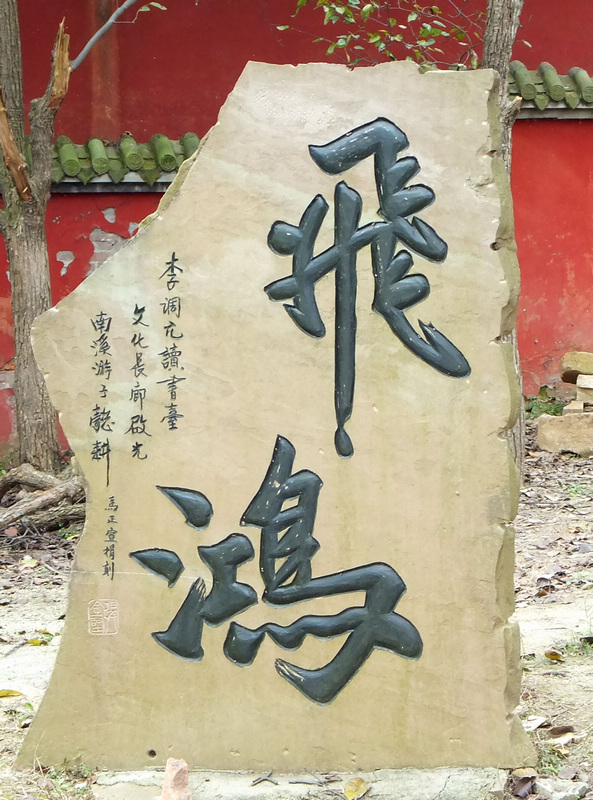 飛鴻
李調元讀書臺
文化長廊啟光
南溪游子懿斟
馬正奎捐刻